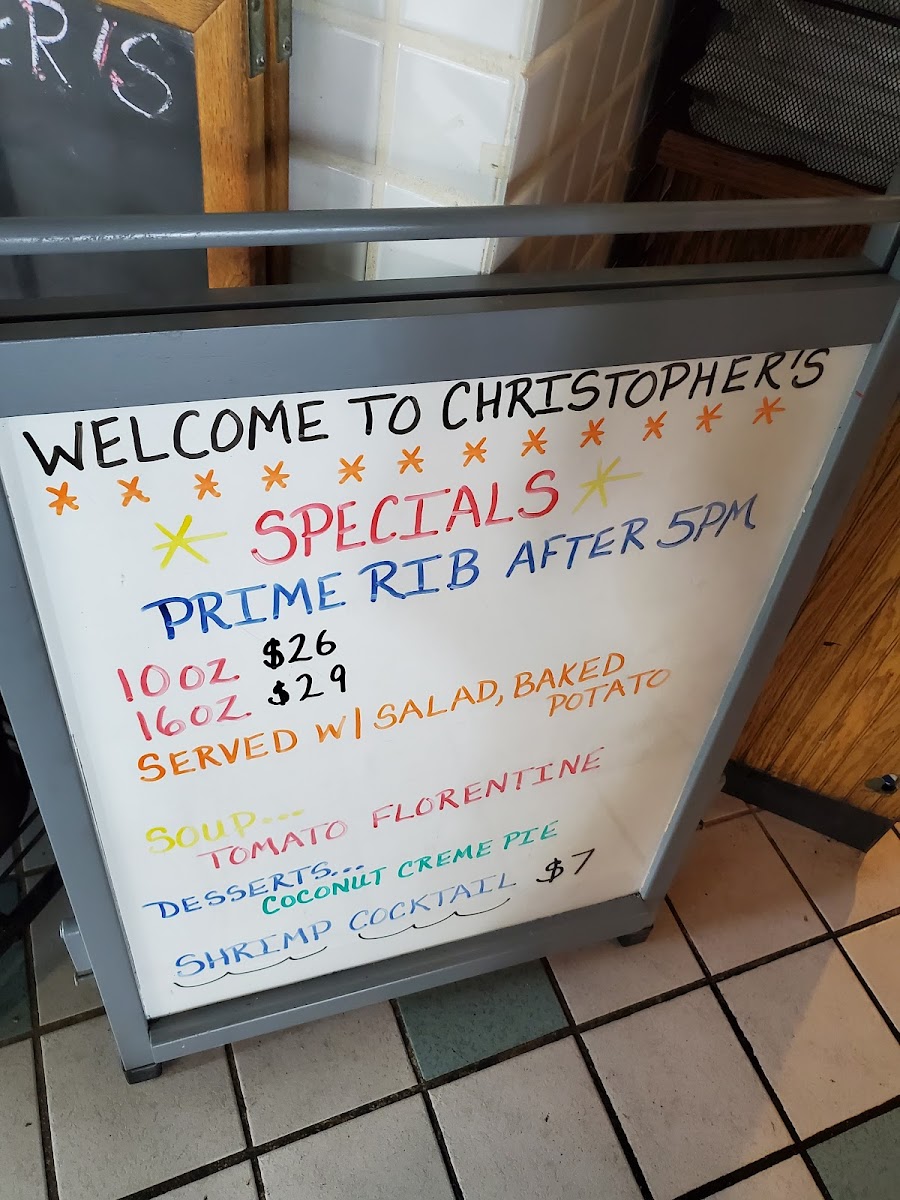 ER'S
WELCOME TO CHRISTOPHER'S
* * * * * * * * * * *
* SPECIALS *
PRIME RIB AFTER 5PM
10OZ $26
16OZ $29
SERVED W/ SALAD, BAKED
POTATO
SOUP...
TOMATO FLORENTINE
DESSERTS...
COCONUT CREME PIE
SHRIMP COCKTAIL $7